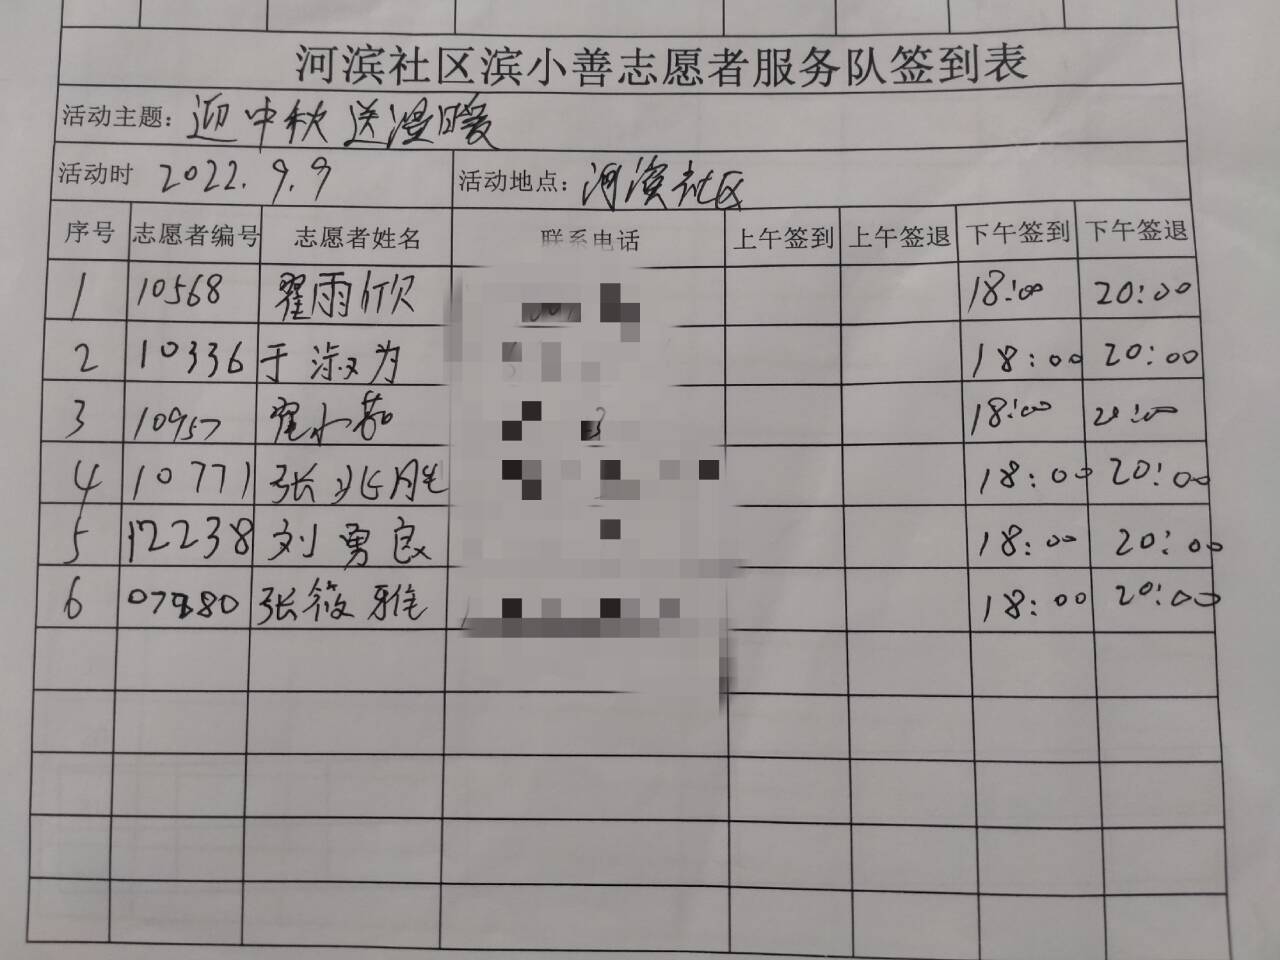 河滨社区滨小善志愿者服务队签到表
活动主题：迎中秋送温暖
活动时 2022.9.9 活动地点：河滨社区
序号 志愿者编号 志愿者姓名 联系电话 上午签到 上午签退 下午签到 下午签退
1 10568 翟雨欣 18:00 20:00
2 10336 于淑为 18:00 20:00
3 10957 翟 18:00 20:00
4 10771 张兆胜 18:00 20:00
5 12238 刘勇良 18:00 20:00
6 张筱雅 18:00 20:00